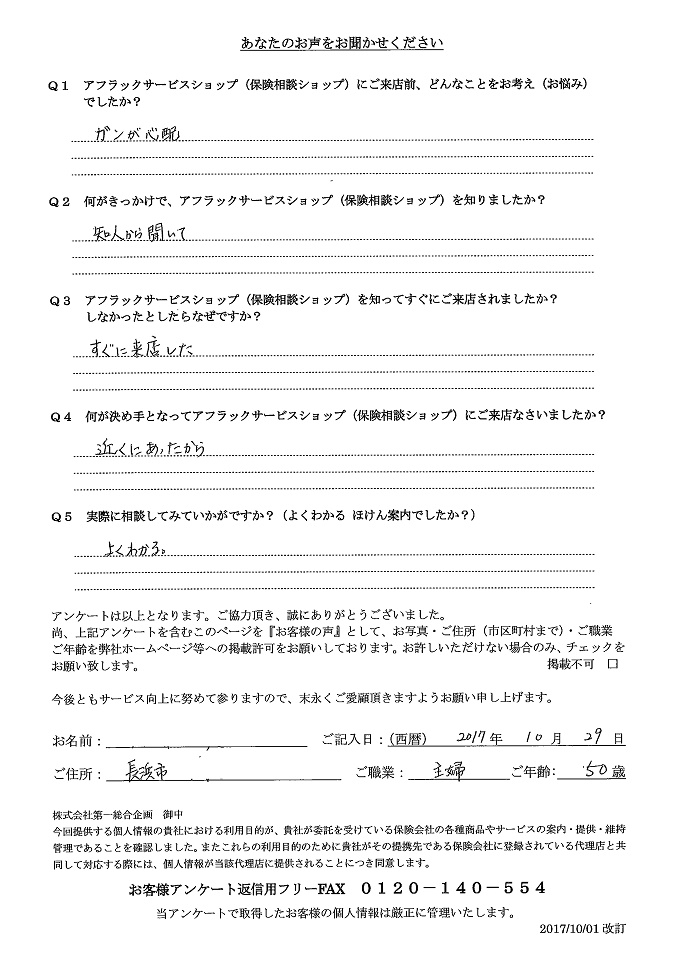 あなたのお声をお聞かせください
Q１ アフラックサービスショップ（保険相談ショップ）にご来店前、どんなことをお考え（お悩み）
でしたか？
ガンが心配
Q２ 何がきっかけで、アフラックサービスショップ（保険相談ショップ）を知りましたか？
知人から聞いて
Q３ アフラックサービスショップ（保険相談ショップ）を知ってすぐにご来店されましたか？
しなかったとしたらなぜですか？
すぐに来店した
Q４ 何が決め手となってアフラックサービスショップ（保険相談ショップ）にご来店なさいましたか？
近くにあったから
Q５ 実際に相談してみていかがですか？（よくわかる ほけん案内でしたか？）
よくわかる。
アンケートは以上となります。ご協力頂き、誠にありがとうございました。
尚、上記アンケートを含むこのページを『お客様の声』として、お写真・ご住所（市区町村まで）・ご職業
ご年齢を弊社ホームページ等への掲載許可をお願いしております。お許しいただけない場合のみ、チェックを
お願い致します。 掲載不可 □
今後ともサービス向上に努めて参りますので、末永くご愛顧頂きますようお願い申し上げます。
お名前： ご記入日：（西暦） 2017 年 10 月 29 日
ご住所： 長浜市 ご職業： 主婦 ご年齢： 50 歳
株式会社第一総合企画 御中
今回提供する個人情報の貴社における利用目的が、貴社が委託を受けている保険会社の各種商品やサービスの案内・提供・維持
管理であることを確認しました。またこれらの利用目的のために貴社がその提携先である保険会社に登録されている代理店と共
同して対応する際には、個人情報が当該代理店に提供されることにつき同意します。
お客様アンケート返信用フリーFAX ０１２０－１４０－５５４
当アンケートで取得したお客様の個人情報は厳正に管理いたします。
2017/10/01 改訂